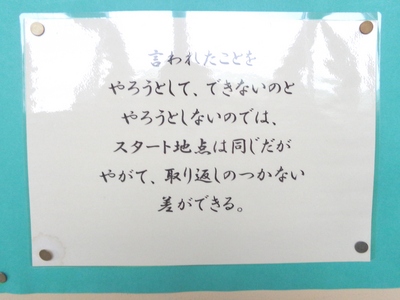 言われたことを
やろうとして、できないのと
やろうとしないのでは、
スタート地点は同じだが
やがて、取り返しのつかない
差ができる。